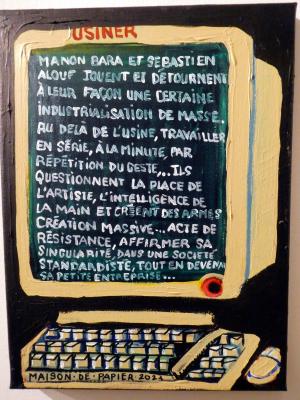 USINER
MANON BARA ET SEBASTIEN
ALOUF JOUENT ET DÉTOURNENT
À LEUR FAÇON UNE CERTAINE
INDUSTRIALISATION DE MASSE.
AU DELÀ DE L'USINE, TRAVAILLER
EN SÉRIE, À LA MINUTE, PAR
RÉPÉTITION DU GESTE,.. ILS
QUESTIONNENT LA PLACE DE
L'ARTISTE, L'INTELLIGENCE DE
LA MAIN ET CRÉENT DES ARMES
CRÉATION MASSIVE... ACTE DE
RÉSISTANCE, AFFIRMER SA
SINGULARITÉ, DANS UNE SOCIÉTÉ
STANDARDISTE, TOUT EN DEVENA
SA PETITE ENTREPRISE...
MAISON-DE-PAPIER 2021